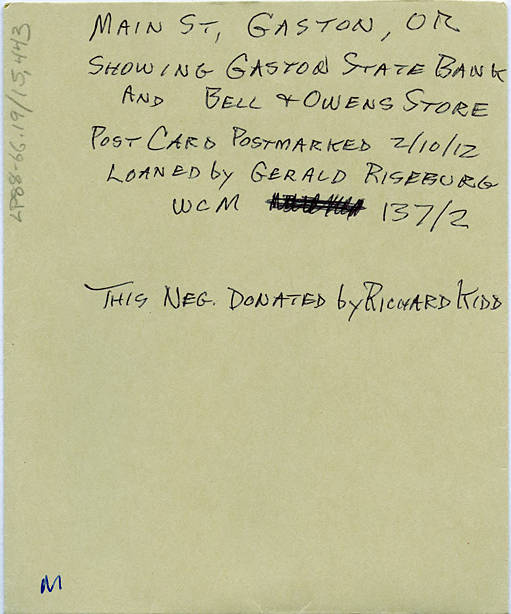 MAIN ST, GASTON, OR
SHOWING GASTON STATE BANK
AND BELL & OWENS STORE
POST CARD POSTMARKED 2/10/12
LOANED by GERALD RISEBURG
WCM 137/2
THIS NEG. DONATED by RICHARD KIDD
LP88-66.19/15,443
M